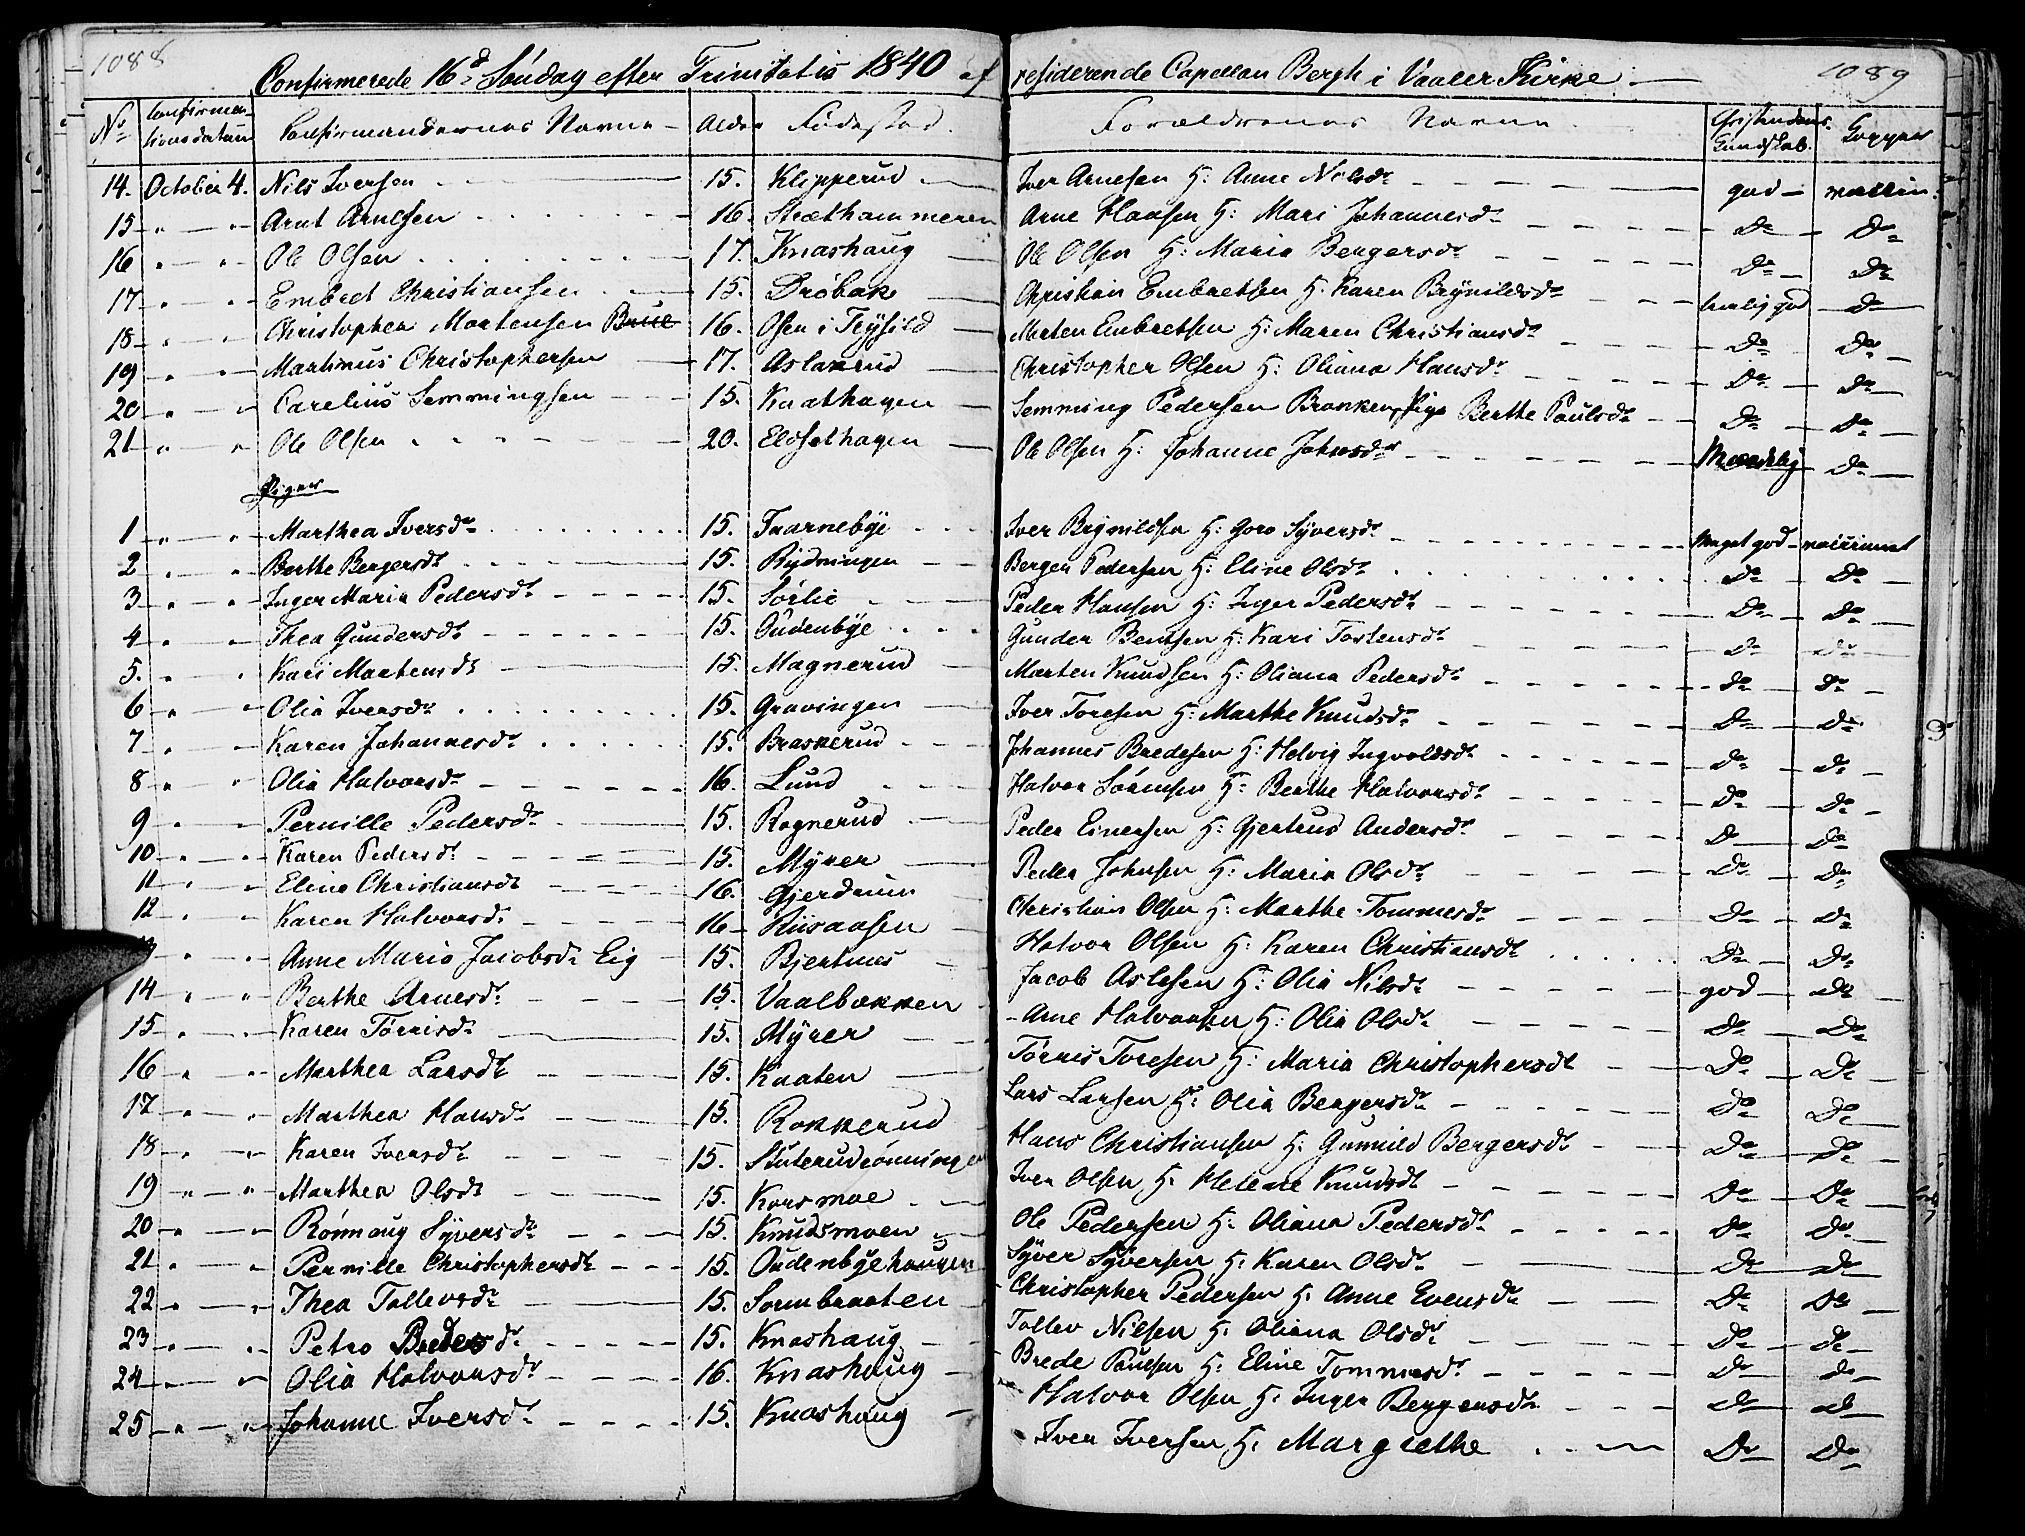 1088 1089
Confirmerede 16d Søndag efter Trinitatis 1840 af residerende Capellan Bergh i Vaaler Kirke
No Confirmationsdatum Confirmandernes Navne Alder Fødested Forældrenes Navne Christendoms Kundskab Kopper
14. October 4. Nils Iversen 15. Klipperud Iver Arnesen H: Anne Nelsdr god vaccin:
15 " " Arnt Arnesen 16. Stræthammeren Arne Hansen H: Mari Johannesdr Do Do
16 " " Ole Olsen 17. Knashaug Ole Olsen H: Maria Bergersdr Do Do
17 " " Embret Christiansen 15. Drøbak Christian Embretsen H: Karen Brynildsdr temlig god Do
18 " " Christopher Mortensen Brue 16. Osen i Trysild Morten Embretsen H: Maren Christiansdr Do Do
19 " " Martinus Christophersen 17. Aslakrud Christopher Olsen H: Oliana Hansdr Do Do
20 " " Carelius Semmingsen 15. Knathagen Semming Pedersen Branken, Pige Berthe Paulsdr Do Do
21 " " Ole Olsen 20. Elosethagen Ole Olsen H: Johanne Johnsdr Maadelig Do
Piger
1 " " Marthea Iversdr 15. Taarnebye Iver Brynildsen H: Goro Syversdr Meget god vaccineret
2 " " Berthe Bergersdr 15. Rydningen Berger Pedersen H: Eline Olsdr Do Do
3 " " Inger Maria Pedersdr 15. Sørlie Peder Hansen H: Inger Pedersdr Do Do
4 " " Thea Gundersdr 15. Oudenbye Gunder Bentsen H: Kari Tostensdr Do Do
5. " " Kari Martensdr 15. Magnerud Marten Knudsen H: Oliana Pedersdr Do Do
6 " " Olia Iversdr 15. Gravingen Iver Toresen H: Marthe Knudsdr Do Do
7 " " Karen Johannesdr 15. Braskerud Johannes Bredesen H: Helvig Ingvoldsdr Do Do
8 " " Olia Halvorsdr 16. Lund Halvor Sørensen H: Berthe Halvorsdr Do Do
9 " " Pernille Pedersdr 15. Rognerud Peder Einersen H: Gjertrud Andersdr Do Do
10 " " Karen Pedersdr 15. Myrer Peder Johnsen H: Maria Olsdr Do Do
11 " " Eline Christiansdr 16. Gjerdrum Christian Olsen H: Marthe Tommesdr Do Do
12 " " Karen Halvorsdr 16 Riisaasen Halvor Olsen H: Karen Christiansdr Do Do
" " Anne Maria Jacobsdr Eig 15. Bjertnes Jacob Aslesen H: Olia Nilsdr god Do
14 " " Berthe Arnesdr 15. Vaalbækken Arne Halvorsen H: Olia Olsdr Do Do
15 " " Karen Tørrisdr 15. Myrer Tørris Toresen H: Maria Christophersdr Do Do
16 " " Marthea Larsdr 15. Kaaten Lars Larsen H: Olia Bergersdr Do Do
17 " " Marthea Hansdr 15. Rokkerud Hans Christiansen H: Gunnild Bergersdr Do Do
18 " " Karen Iversdr 15. Stuterudrønningen Iver Olsen H: Helene Knudsdr Do Do
19 " " Marthea Olsdr 15. Korsmoe Ole Pedersen H: Oliana Pedersdr Do Do
20 " " Rønnaug Syversdr 15. Knudsmoen Syver Syversen H: Karen Olsdr Do Do
21 " " Pernille Christophersdr 15. Oudenbyehaugen Christopher Pedersen H: Anne Evensdr Do Do
22 " " Thea Tollevsdr 15. Sormbraaten Tollev Nilsen H: Oliana Olsdr Do Do
23 " " Petro Bredesdr 15. Knashaug Brede Poulsen H: Eline Tommesdr Do Do
24 " " Olia Halvorsdr 16. Knashaug Halvor Olsen H: Inger Bergersdr Do Do
25 " " Johanne Iversdr 15. Knashaug Iver Iversen H: Margrethe Do Do